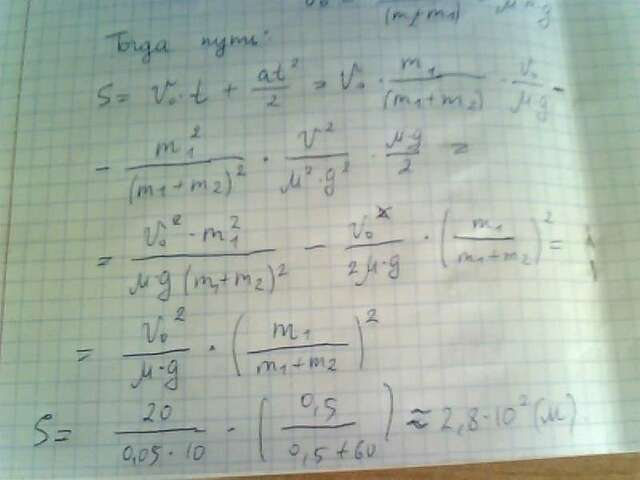 (m1+m1) μ·g
Тогда путь:
S = V₀·t + at²/2 = V₀ · m₁/(m₁+m₂) · V₀/μ·g -
- m₁²/(m₁+m₂)² · V²/μ²·g² · μ·g/2 =
= V₀²·m₁²/μ·g (m₁+m₂)² - V₀²/2μ·g · (m₁/m₁+m₂)² =
= V₀²/μ·g · (m₁/m₁+m₂)²
S = 20/0,05·10 · (0,5/0,5+60) ≈ 2,8·10² (м)